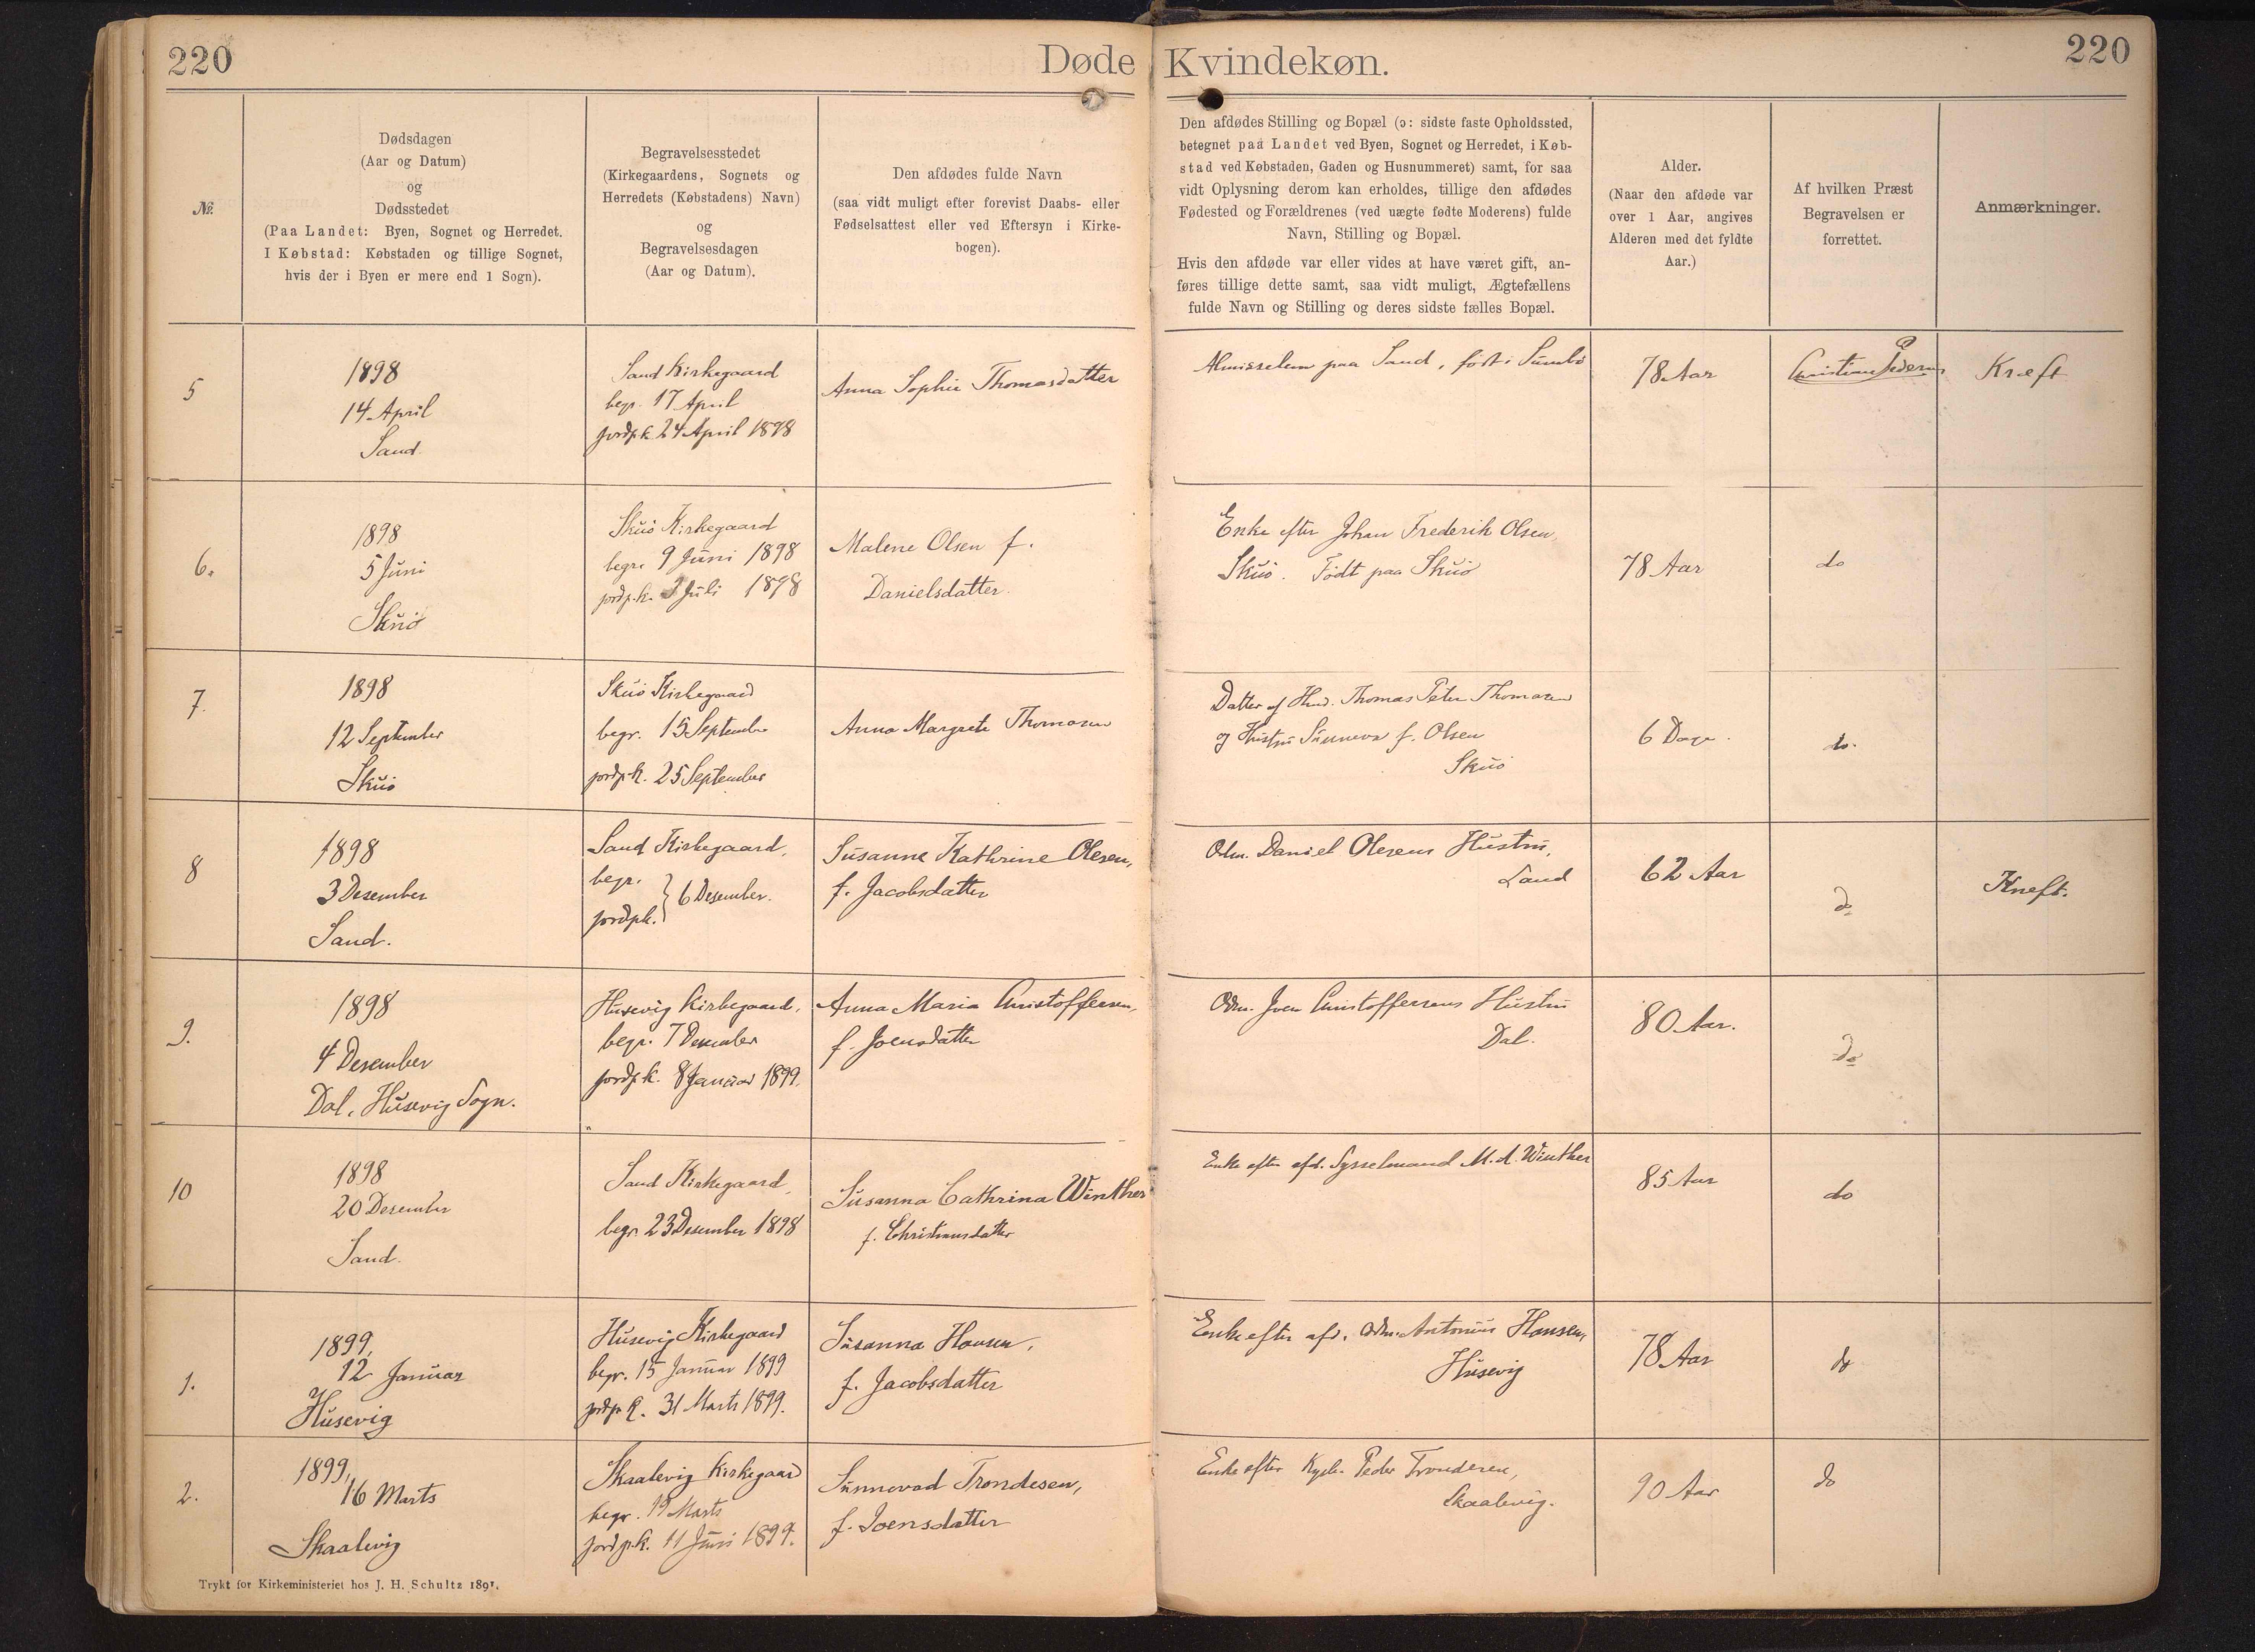 220
Døde Kvindekøn.
220
№
Dødsdagen
(Aar og Datum)
og
Dødsstedet
(Paa Landet: Byen, Sognet og Herredet.
I Købstad: Købstaden og tillige Sognet,
hvis der i Byen er mere end 1 Sogn).
Begravelsesstedet
(Kirkegaardens, Sognets og
Herredets (Købstadens) Navn)
og
Begravelsesdagen
(Aar og Datum).
Den afdødes fulde Navn
(saa vidt muligt efter forevist Daabs- eller
Fødselsattest eller ved Eftersyn i Kirke-
bogen).
Den afdødes Stilling og Bopæl (ɔ: sidste faste Opholdssted,
betegnet paa Landet ved Byen, Sognet og Herredet, i Køb-
stad ved Købstaden, Gaden og Husnummeret) samt, for saa
vidt Oplysning derom kan erholdes, tillige den afdødes
Fødested og Forældrenes (ved uægte fødte Moderens) fulde
Navn, Stilling og Bopæl.
Hvis den afdøde var eller vides at have været gift, an-
føres tillige dette samt, saa vidt muligt, Ægtefællens
fulde Navn og Stilling og deres sidste fælles Bopæl.
Alder.
(Naar den afdøde var
over 1 Aar, angives
Alderen med det fyldte
Aar.)
Af hvilken Præst
Begravelsen er
forrettet.
Anmærkninger.
5
1898
14 April
Sand
Sand Kirkegaard
begr. 17 April
jordp.k. 24 April 1898
Anna Sophie Thomasdatter
Almisselem paa Sand, født i Sumbø
78 Aar
Christian Pedersen
Kræft
6.
1898
5 Juni
Skuö
Skuö Kirkegaard
begr. 9 Juni 1898
jordp.k. 3 Juli 1898
Malene Olsen f.
Danielsdatter.
Enke efter Johan Frederik Olsen,
Skuö. Født paa Skuö
78 Aar
do
7.
1898
12 September
Skuö
Skuö Kirkegaard
begr. 15 September
jordp.k. 25 September
Anna Margrete Thomasen
Datter af Thomas Peter Thomasen
og Hustru Sunneva f. Olsen
Skuö
6 Dage.
do.
8
1898
3 Desember
Sand.
Sand Kirkegaard,
begr.
jordp.k. } 6 Desember.
Susanne Kathrine Olesen,
f. Jacobsdatter
Odm. Daniel Olesens Hustru,
Sand
62 Aar
do
Kræft.
9.
1898
4 Desember
Dal, Husevig Sogn.
Husevig Kirkegaard,
begr. 7 Desember
jordp.k. 8 Januar 1899.
Anna Maria Christoffersen,
f. Joensdatter
Odm. Joen Christoffersens Hustru
Dal.
80 Aar.
do
10
1898
20 Desember
Sand.
Sand Kirkegaard,
begr. 23 Desember 1898
Susanna Cathrina Winther
f. Christiansdatter
Enke efter afd. Sysselmand M. A. Winther
85 Aar
do
1.
1899,
12 Januar
Husevig
Husevig Kirkegaard
begr. 15 Januar 1899
jordp.k. 31 Marts 1899.
Susanna Hansen,
f. Jacobsdatter
Enke efter afd. Odm. Antonius Hansen,
Husevig
78 Aar
do
2.
1899,
16 Marts
Skaalevig
Skaalevig Kirkegaard
begr. 19 Marts
jordp.k. 11 Juni 1899.
Sunnevad Trondesen,
f. Joensdatter
Enke efter Peder Trondesen,
Skaalevig.
90 Aar
do
Trykt for Kirkeministeriet hos J. H. Schultz 1891.